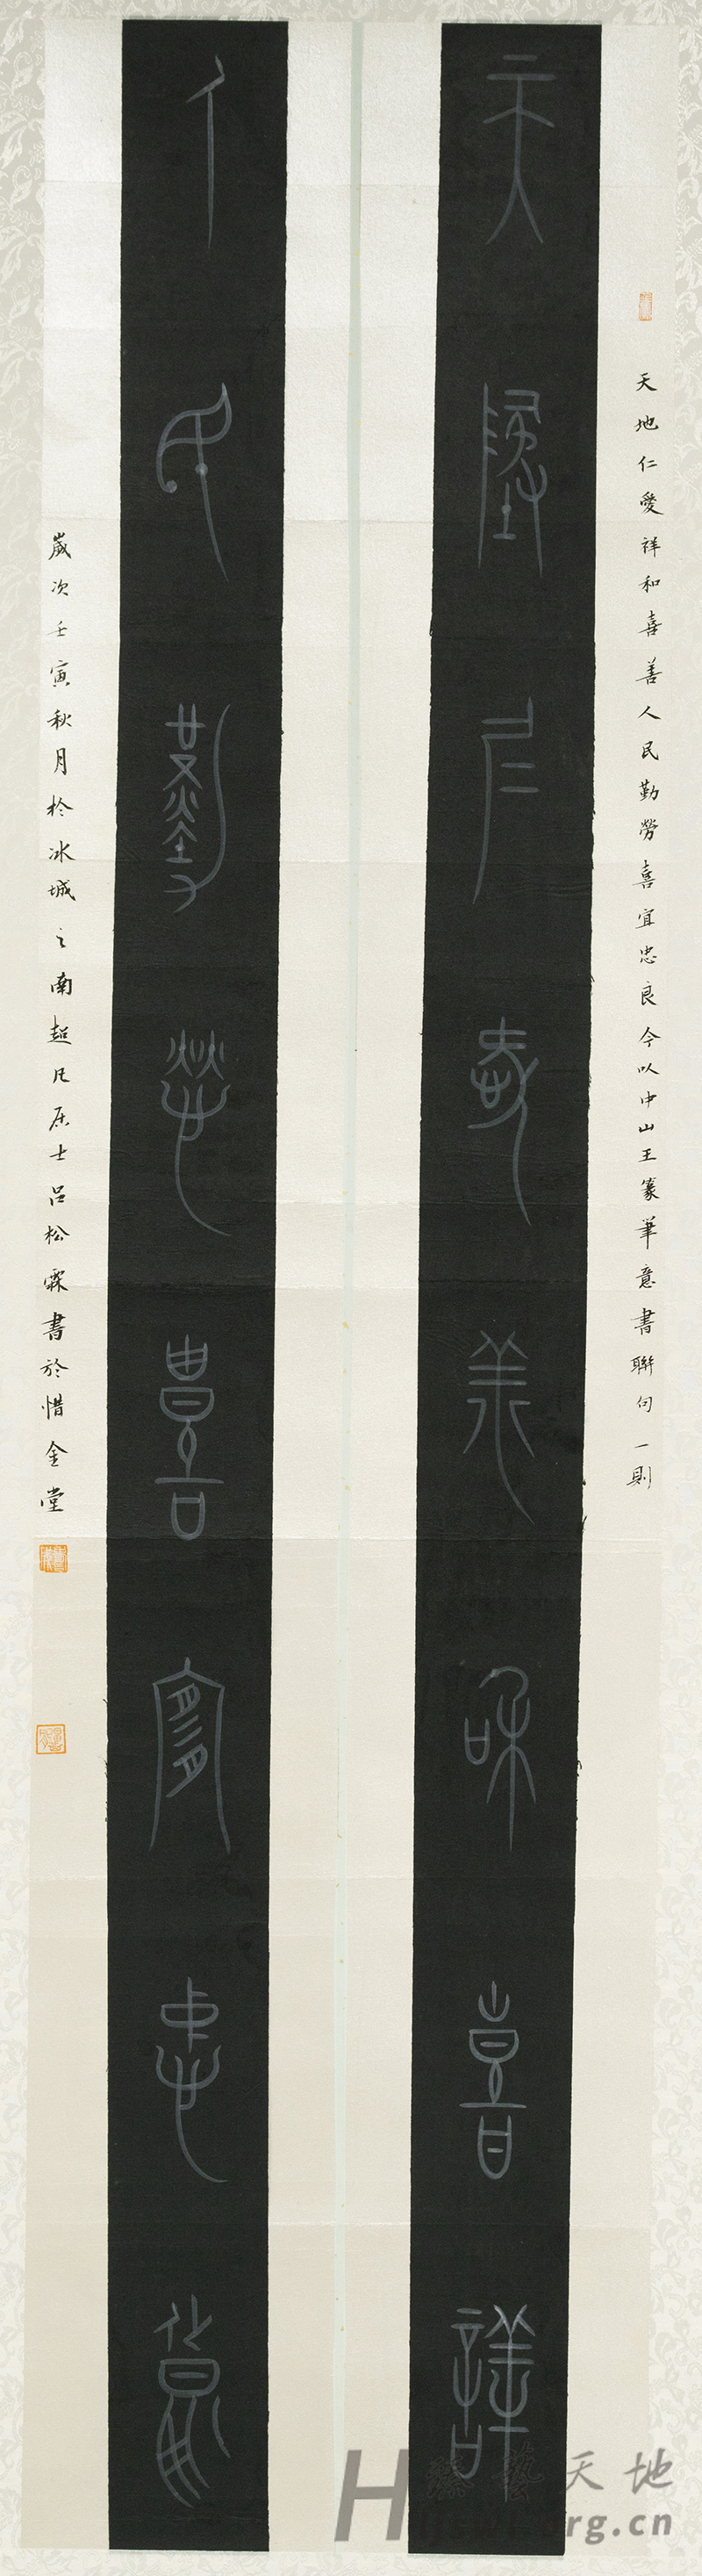 天地仁愛祥和喜善
人民勤勞喜宜忠良
天地仁愛祥和喜善人民勤勞喜宜忠良今以中山王篆筆意書聯句一則
歲次壬寅秋月於冰城之南超凡居士呂松霖書於惜金堂
天地
rg.cn